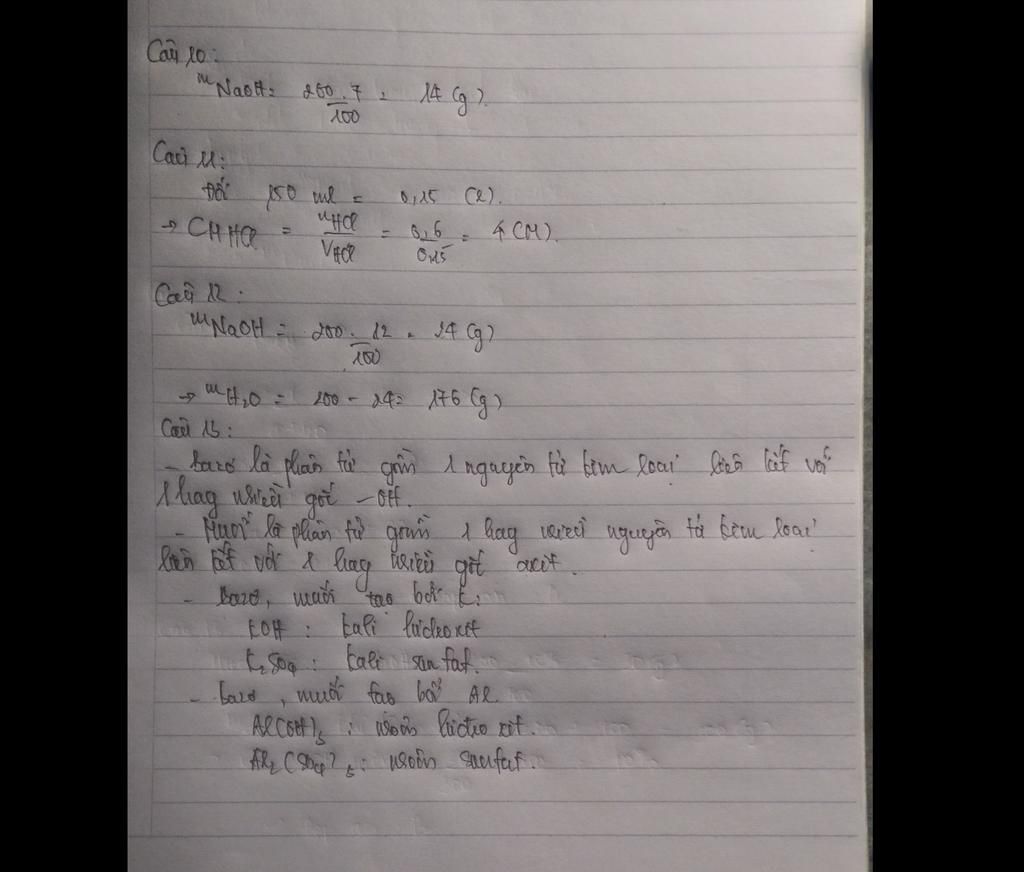 Câu 10:
mNaOH = 200.7/100 = 14 (g).
Câu 11:
Đổi 150 ml = 0,15 (l).
→ CM HCl = nHCl/VHCl = 0,6/0,15 = 4 (M).
Câu 12:
mNaOH = 200.12/100 = 24 (g)
→ mH₂O = 200 - 24 = 176 (g)
Câu 13:
- bazơ là phân tử gồm 1 nguyên tử kim loại liên kết với
1 hay nhiều gốc -OH.
- Muối là phân tử gồm 1 hay nhiều nguyên tử kim loại
liên kết với 1 hay nhiều gốc axit.
- bazơ, muối tạo bởi K:
KOH: kali hiđroxit
K₂SO₄: kali sunfat.
- bazơ, muối tạo bởi Al
Al(OH)₃: nhôm hiđroxit.
Al₂(SO₄)₃: nhôm sunfat.